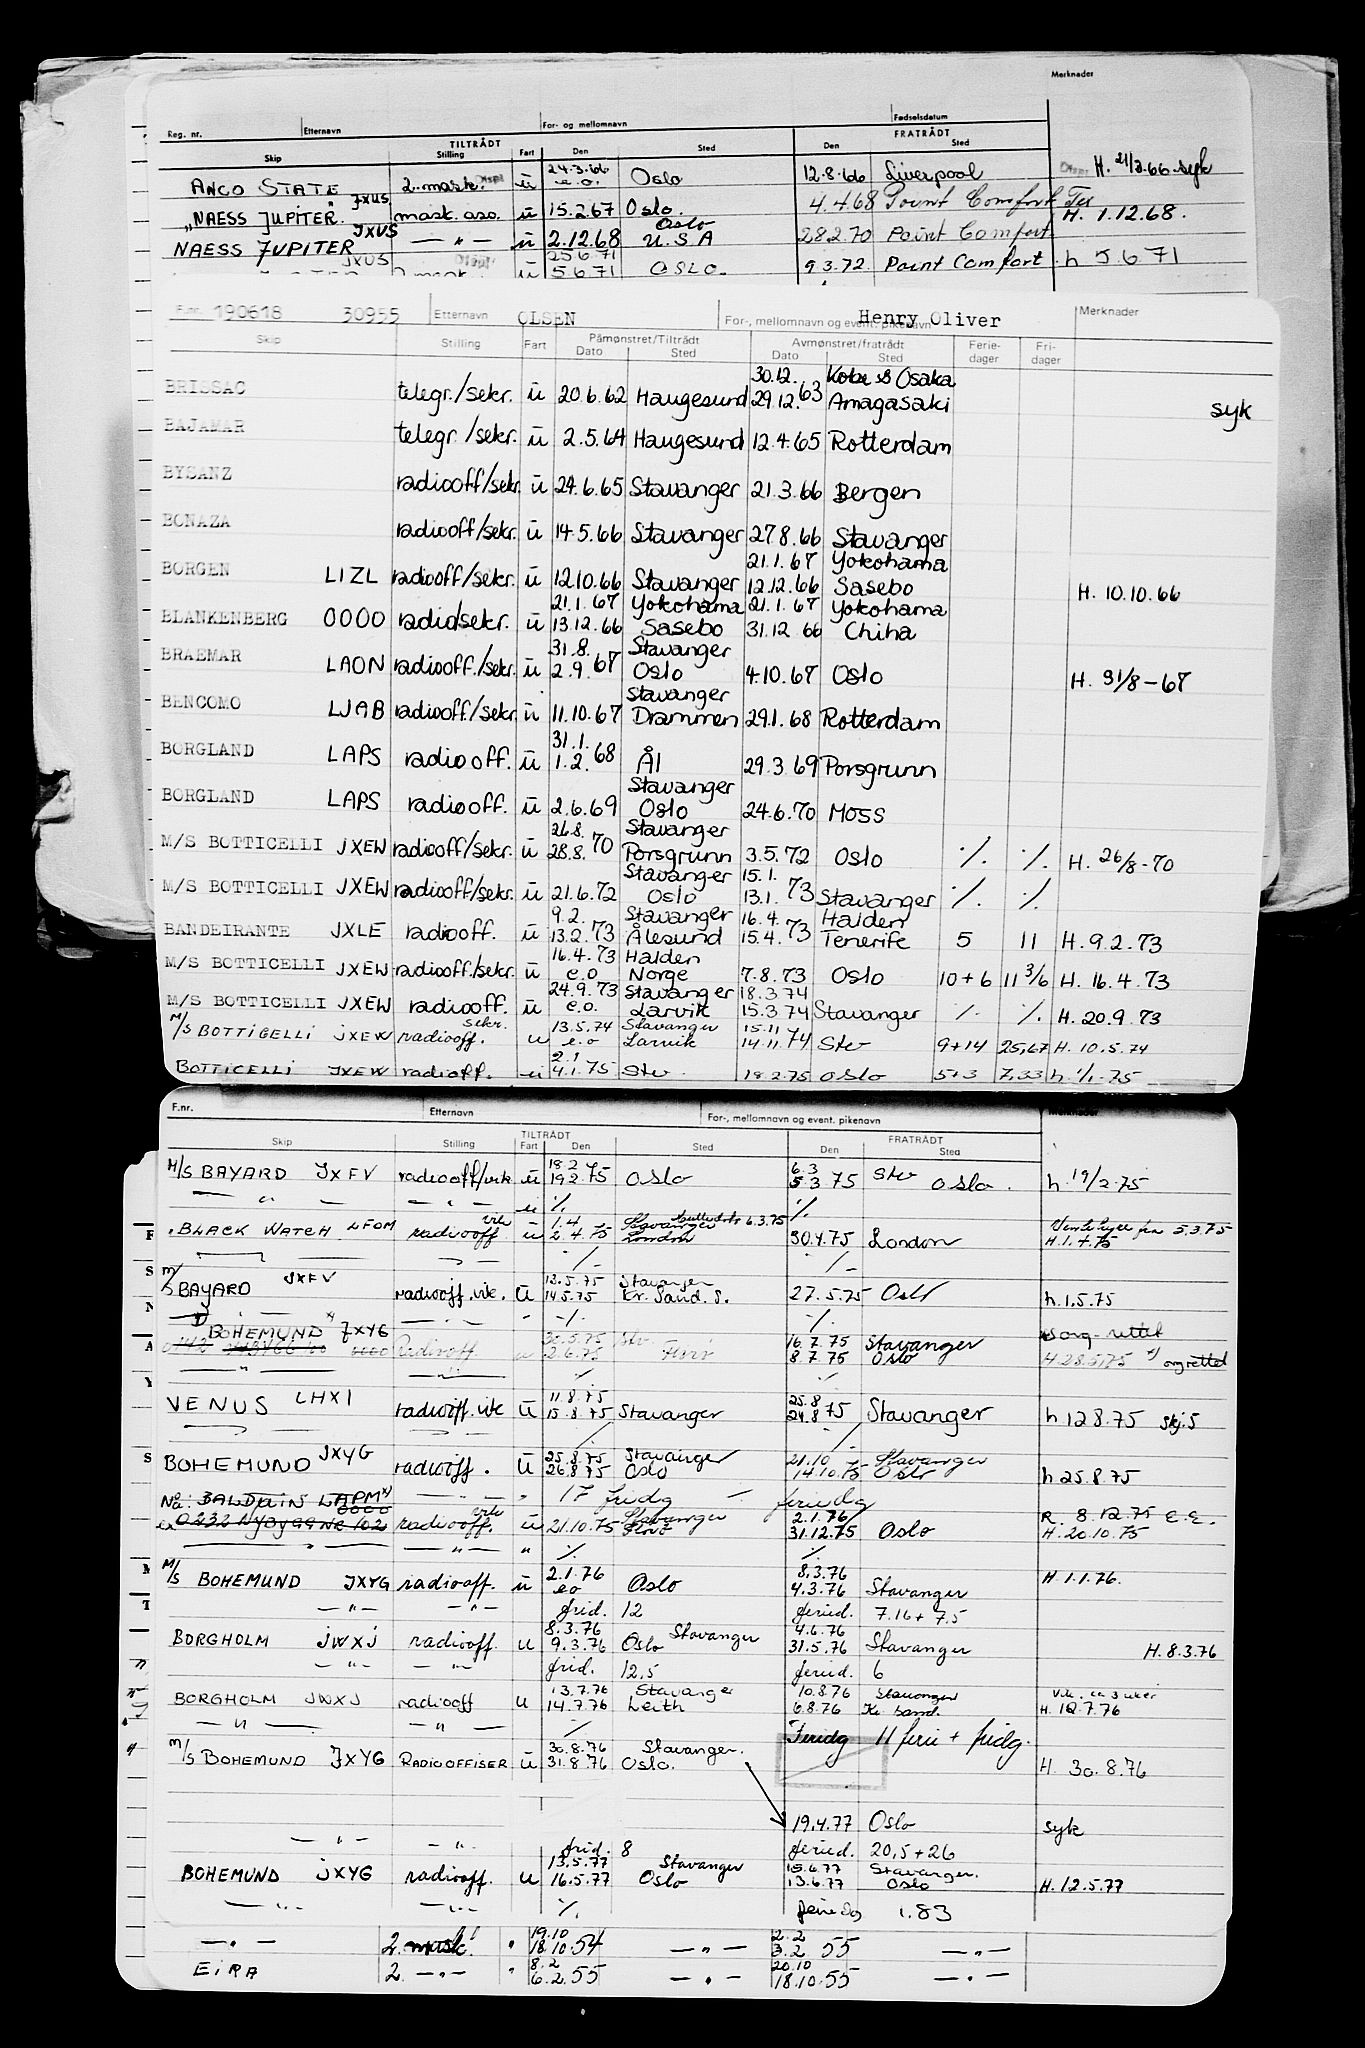 Merknader
Reg. nr. Etternavn For- og mellomnavn Fødselsdatum
TILTRÅDT FRATRÅDT
Skip Stilling Fart Den Sted Den Sted
ANCO STATE 2. mask. ü 24.3.66 e.o. Oslo 12.8.66 Liverpool H. 21/3.66. syk
"NAESS JUPITER" JXUS mask. ass. ü 15.2.67 Oslo. 4.4.68 Point Comfort H. 1.12.68.
NAESS JUPITER JXUS — " — ü 2.12.68 Oslo U.S.A 28.2.70 Point Comfort
JXUS ü 25.6.71 5.6.71 OSLO. 9.3.72 Point Comfort h 5.6.71
F.nr. 190618 30955 Etternavn OLSEN For-, mellomnavn og event. pikenavn Henry Oliver Merknader
Skip Stilling Fart Påmønstret/Tiltrådt Dato Sted Avmønstret/fratrådt Dato Sted Ferie-dager Fri-dager
30.12. Kobe & Osaka
BRISSAC telegr./sekr. ü 20.6.62 Haugesund 29.12.63 Amagasaki syk
BAJAMAR telegr./sekr. ü 2.5.64 Haugesund 12.4.65 Rotterdam
BYSANZ radiooff/sekr. ü 24.6.65 Stavanger 21.3.66 Bergen
BONAZA radiooff/sekr. ü 14.5.66 Stavanger 27.8.66 Stavanger
21.1.67 Yokohama
BORGEN LIZL radiooff/sekr. ü 12.10.66 Stavanger 12.12.66 Sasebo H. 10.10.66
21.1.67 Yokohama 21.1.67 Yokohama
BLANKENBERG OOOO radio/sekr. ü 13.12.66 Sasebo 31.12 66 Chiba
31.8. Stavanger
BRAEMAR LAON radiooff./sekr. ü 2.9.67 Oslo 4.10.67 Oslo H. 31/8-67
Stavanger
BENCOMO LJAB radiooff/sekr ü 11.10.67 Drammen 29.1.68 Rotterdam
31.1.
BORGLAND LAPS radiooff. ü 1.2.68 Ål 29.3.69 Porsgrunn
Stavanger
BORGLAND LAPS radiooff. ü 2.6.69 Oslo 24.6.70 Moss
26.8. Stavanger
M/S BOTTICELLI JXEW radiooff/sekr. ü 28.8.70 Porsgrunn 3.5.72 Oslo ./. ./. H. 26/8-70
Stavanger 15.1.
M/S BOTTICELLI JXEW radiooff/sekr. ü 21.6.72 Oslo 13.1.73 Stavanger ./. ./.
9.2. Stavanger 16.4. Halden
BANDEIRANTE JXLE radiooff. ü 13.2.73 Ålesund 15.4.73 Tenerife 5 11 H. 9.2.73
16.4.73 Halden
M/S BOTTICELLI JXEW radiooff./sekr. ü e.o Norge 7.8.73 Oslo 10+6 11 3/6 H. 16.4.73
24.9.73 Stavanger 18.3.74
M/S BOTTICELLI JXEW radiooff. ü e.o. Larvik 15.3.74 Stavanger ./. ./. H. 20.9.73
sekr. 13.5.74 Stavanger 15.11
M/S BOTTICELLI JXEW radiooff. u e.o Larvik 14.11.74 Stv 9+14 25,67 H. 10.5.74
2.1
BOTTICELLI JXEW radioff. ü 4.1.75 Stv. 18.2.75 Oslo 5+3 7,33 h. 1/1-75
F.nr. Etternavn For-, mellomnavn og event. pikenavn Merknader
TILTRÅDT FRATRÅDT
Skip Stilling Fart Den Sted Den Sted
18.2 6.3 Stv
M/S BAYARD JXFV radiooff/vik ü 19.2.75 Oslo 5.3.75 Oslo. h. 19/2-75
— " — — " — u ./. ./.
vik 1.4 Stavanger 6.3.75 5.3.75
BLACK WATCH LFOM radiooff ü 2.4.75 London 30.4.75 London H.1.4.75
— " — ./. ./.
12.5.75 Stavanger
M/S BAYARD JXFV radiooff.vik. ü 14.5.75 Kr. Sand. S. 27.5.75 Oslo h.1.5.75
— " — ./. ./.
BOHEMUND JXYG 30.5.75 Stv. 16.7.75 Stavanger
0000 Radiooff 2.6.75 8.7.75 Oslo H.28.5.75
— " — — " — ./. ./.
11.8.75 25.8
VENUS LHXI radiooff.vik ü 15.8.75 Stavanger 24.8.75 Stavanger h 12.8.75 skj.S
./. ./.
25.8.75 Stavanger 21.10 Stavanger
BOHEMUND JXYG radiooff. ü 26.8.75 Oslo 14.10.75 Oslo h 25.8.75
— " — 17 fridg — feriedg
BALDUIN LAPM 0000 Stavanger 2.1.76 R. 8.12.75 E.E.
radiooff. ü 21.10.75 31.12.75 Oslo H. 20.10.75
— " — — " — " ./. ./.
2.1.76 8.3.76
M/S BOHEMUND JXYG radiooff. ü eo Oslo 4.3.76 Stavanger H. 1.1.76.
— " — — " — frid. 12 feried. 7.16 + 7.5
8.3.76 Stavanger 4.6.76
BORGHOLM JWXJ radiooff. u 9.3.76 Oslo 31.5.76 Stavanger H. 8.3.76
— " — — " — frid. 12.5 feried. 6
13.7.76 Stavanger 10.8.76 Stavanger Vik. ca 3 uker
BORGHOLM JWXJ radiooff u 14.7.76 Leith 6.8.76 Kr. sand. H. 12.7.76
— " — — " — ./. Feriedg 11 ferie + fridg.
30.8.76 Stavanger.
M/S BOHEMUND JXYG RADIOOFFISER ü 31.8.76 Oslo. H. 30.8.76
19.4.77 Oslo syk
— " — — " — frid. 8 feried. 20,5+26
13.5.77 Stavanger 15.6.77 Stavanger.
BOHEMUND JXYG radiooff. u 16.5.77 Oslo 13.6.77 Oslo H. 12.5.77
— " — — " — ./. feriedg 1.83
19.10 2.2
— " — 2. mask. " 18.10.54 — " — 3.2 55 — " —
8.2 20.10
EIRA 2. — " — " 6.2.55 — " — 18.10.55 — " —